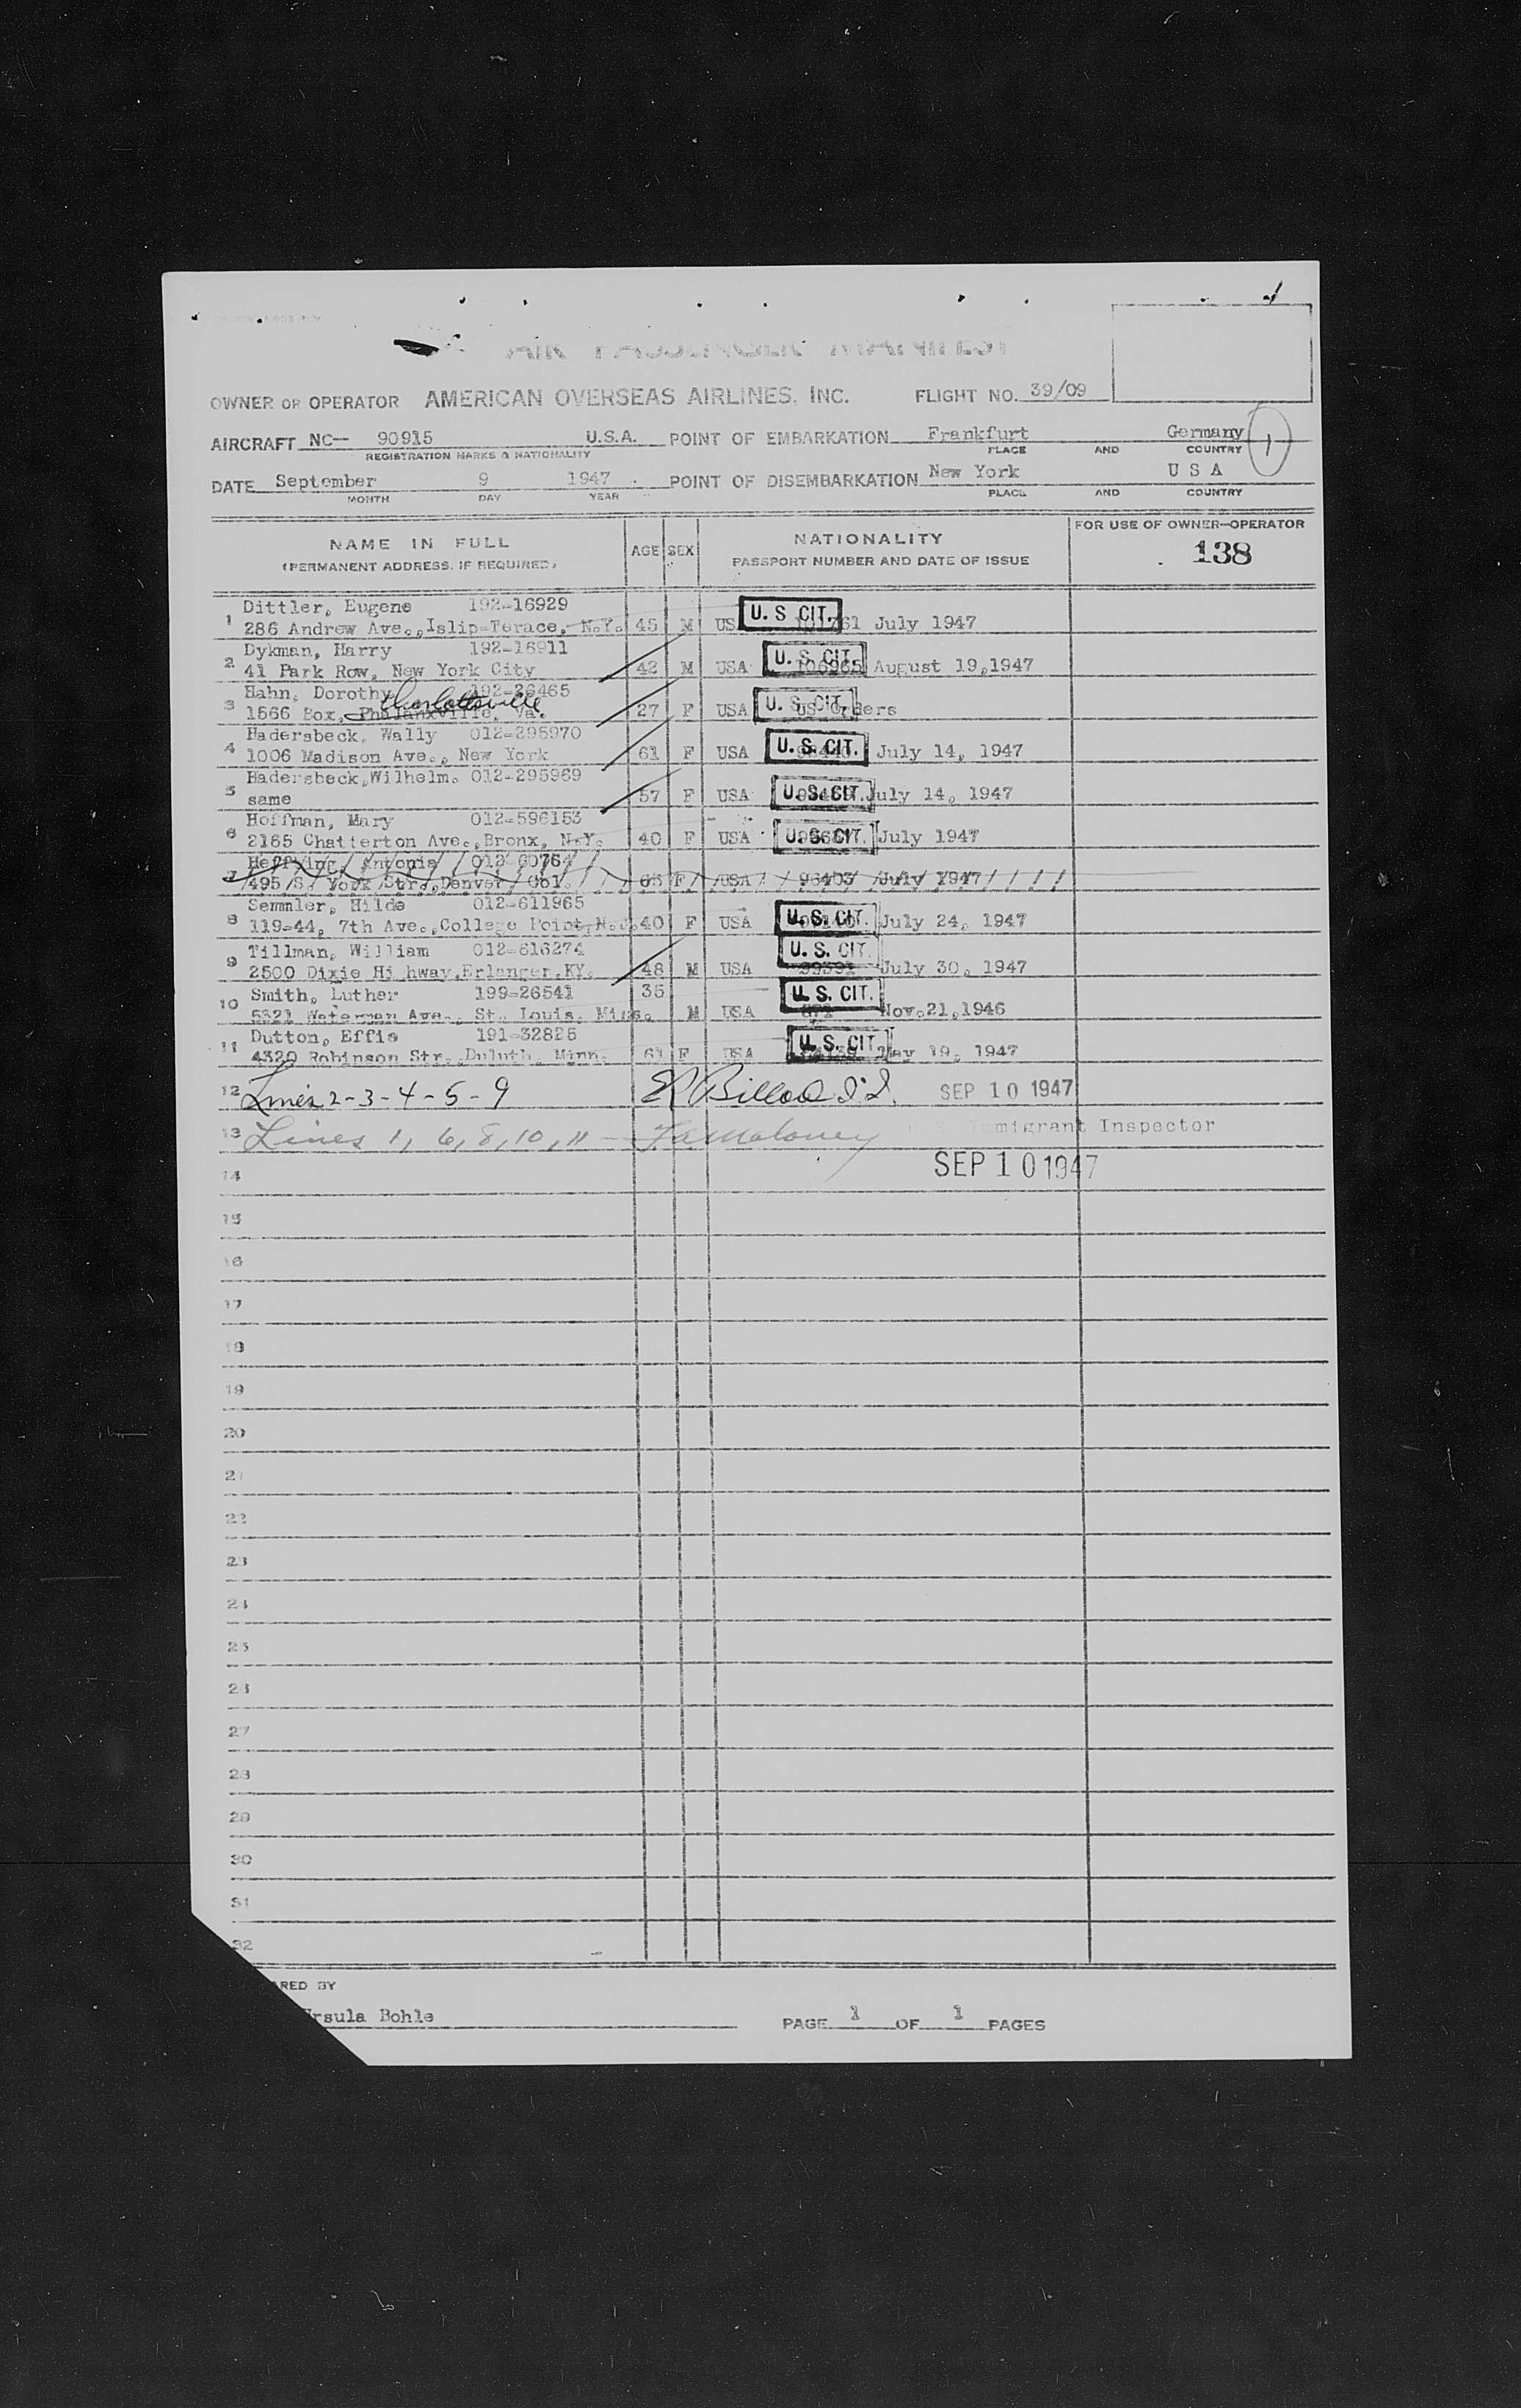 AIR PASSENGER MANIFEST
OWNER OR OPERATOR AMERICAN OVERSEAS AIRLINES, INC. FLIGHT NO. 39/09
AIRCRAFT NC— 90915 U.S.A. POINT OF EMBARKATION Frankfurt Germany 1
REGISTRATION MARKS & NATIONALITY PLACE AND COUNTRY
DATE September 9 1947 POINT OF DISEMBARKATION New York U S A
MONTH DAY YEAR PLACE AND COUNTRY
NAME IN FULL AGE SEX NATIONALITY FOR USE OF OWNER—OPERATOR
(PERMANENT ADDRESS, IF REQUIRED) PASSPORT NUMBER AND DATE OF ISSUE 138
Dittler, Eugene 192-16929
1 286 Andrew Ave., Islip-Terace, N.Y. 45 M US U. S CIT. 61 July 1947
Dykman, Harry 192-16911
2 41 Park Row, New York City 42 M USA U. S. CIT. 106965 August 19,1947
Hahn, Dorothy 192-26465
3 1566 Box, Phalanxville, Va. Charlottesville 27 F USA U. S. CIT. US Orders
Hadersbeck, Wally 012-295970
4 1006 Madison Ave., New York 61 F USA U. S. CIT. July 14, 1947
Hadersbeck,Wilhelm. 012-295969
5 same 57 F USA U. S. CIT. July 14, 1947
Hoffman, Mary 012-596153
6 2165 Chatterton Ave.,Bronx, N.Y. 40 F USA U. S. CIT. July 1947
Antonia 012-60764
7 495 S. York Str.,Denver, Col. 65 F USA 96403 July 1947
Semmler, Hilde 012-611965
8 119-44, 7th Ave.,College Point, 40 F USA U. S. CIT. July 24, 1947
Tillman, William 012-616274
9 2500 Dixie Highway,Erlanger,KY. 48 M USA U. S. CIT. 99391 July 30, 1947
Smith, Luther 199-26541 35
10 5321 Waterman Ave., St. Louis, M USA U. S. CIT. Nov.21,1946
Dutton, Effie 191-32825
11 4320 Robinson Str.,Duluth, Minn. 61 F USA U. S. CIT. May 19, 1947
12 Lines 2-3-4-5-9 SEP 10 1947
13 Lines 1, 6, 8, 10, 11 — Maloney Immigrant Inspector
14 SEP 10 1947
15
16
17
18
19
20
21
22
23
24
25
26
27
28
29
30
31
32
ARED BY
Ursula Bohle PAGE 1 OF 1 PAGES